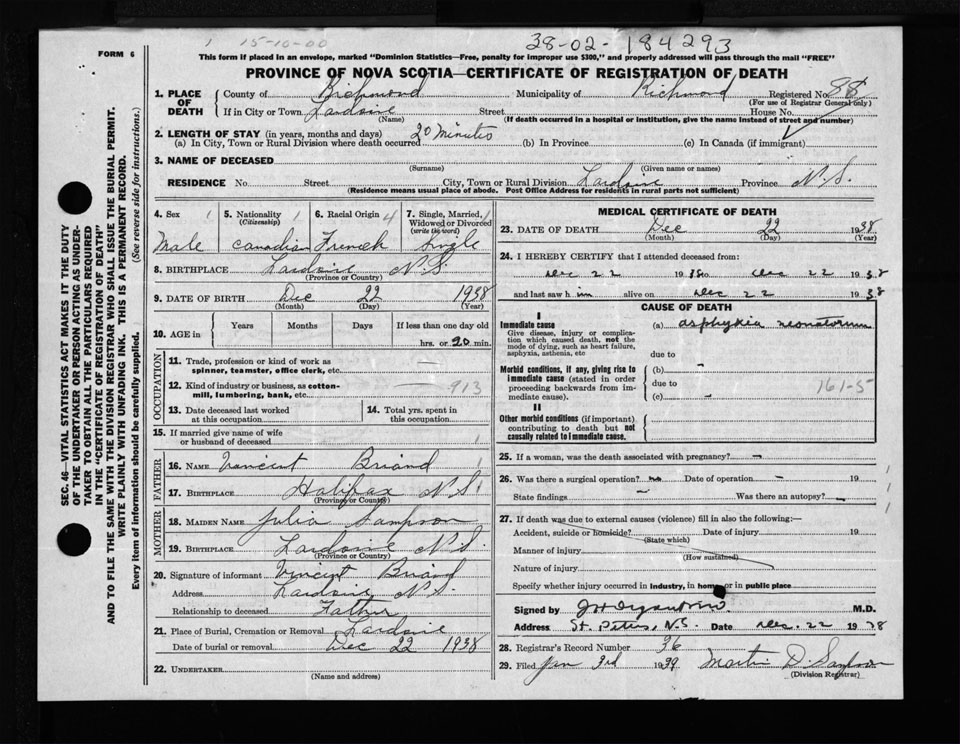 38-02-184293
1 15-10-00
FORM 6
This form if placed in an envelope, marked "Dominion Statistics—Free, penalty for improper use $300," and properly addressed will pass through the mail "FREE"
PROVINCE OF NOVA SCOTIA—CERTIFICATE OF REGISTRATION OF DEATH
SEC. 46—VITAL STATISTICS ACT MAKES IT THE DUTY
OF THE UNDERTAKER OR PERSON ACTING AS UNDER-
TAKER TO OBTAIN ALL THE PARTICULARS REQUIRED
IN THE "CERTIFICATE OF REGISTRATION OF DEATH"
AND TO FILE THE SAME WITH THE DIVISION REGISTRAR WHO SHALL ISSUE THE BURIAL PERMIT.
WRITE PLAINLY WITH UNFADING INK. THIS IS A PERMANENT RECORD.
Every item of information should be carefully supplied. (See reverse side for instructions.)
1. PLACE OF DEATH County of Richmond Municipality of Richmond Registered No. 88
(For use of Registrar General only)
If in City or Town Lardoise Street House No.
(Name) (If death occurred in a hospital or institution, give the name instead of street and number)
2. LENGTH OF STAY (in years, months and days) 20 Minutes
(a) In City, Town or Rural Division where death occurred (b) In Province (c) In Canada (if immigrant)
3. NAME OF DECEASED
(Surname) (Given name or names)
RESIDENCE No. Street City, Town or Rural Division Lardoise Province N.S.
(Residence means usual place of abode. Post Office Address for residents in rural parts not sufficient)
4. Sex 1 Male
5. Nationality 1 (Citizenship) Canadian
6. Racial Origin 4 French
7. Single, Married, Widowed or Divorced (write the word) 1 Single
8. BIRTHPLACE Lardoise N.S.
(Province or Country)
9. DATE OF BIRTH Dec 22 1938
(Month) (Day) (Year)
10. AGE in Years Months Days If less than one day old
hrs. or 20 min.
OCCUPATION
11. Trade, profession or kind of work as
spinner, teamster, office clerk, etc. —
12. Kind of industry or business, as cotton-
mill, lumbering, bank, etc. — 913
13. Date deceased last worked at this occupation
14. Total yrs. spent in this occupation
15. If married give name of wife
or husband of deceased 1
FATHER
16. NAME Vincent Briand
17. BIRTHPLACE Halifax N.S.
(Province or Country)
MOTHER
18. MAIDEN NAME Julia Sampson
19. BIRTHPLACE Lardoise N.S.
(Province or Country)
20. Signature of informant Vincent Briand
Address Lardoise N.S.
Relationship to deceased Father
21. Place of Burial, Cremation or Removal Lardoise
Date of burial or removal Dec 22 1938
22. UNDERTAKER
(Name and address)
MEDICAL CERTIFICATE OF DEATH
23. DATE OF DEATH Dec 22 1938
(Month) (Day) (Year)
24. I HEREBY CERTIFY that I attended deceased from:
Dec 22 1938 to Dec 22 1938
and last saw him alive on Dec 22 1938
CAUSE OF DEATH
I
Immediate cause (a) asphyxia neonatorum
Give disease, injury or complica-
tion which caused death, not the
mode of dying, such as heart failure,
asphyxia, asthenia, etc due to
Morbid conditions, if any, giving rise to (b) -
immediate cause (stated in order due to 161-5
proceeding backwards from im-
mediate cause). (c) -
II
Other morbid conditions (if important)
contributing to death but not
causally related to immediate cause.
25. If a woman, was the death associated with pregnancy? -
26. Was there a surgical operation? no Date of operation - 19
State findings - Was there an autopsy? -
27. If death was due to external causes (violence) fill in also the following:—
Accident, suicide or homicide? Date of injury 19
(State which)
Manner of injury
(How sustained)
Nature of injury
Specify whether injury occurred in industry, in home, or in public place
Signed by M.D.
Address St. Peters, N.S. Date Dec. 22 1938
28. Registrar's Record Number 36
29. Filed Jan 3rd 1939 Martin D. Sampson
(Division Registrar)